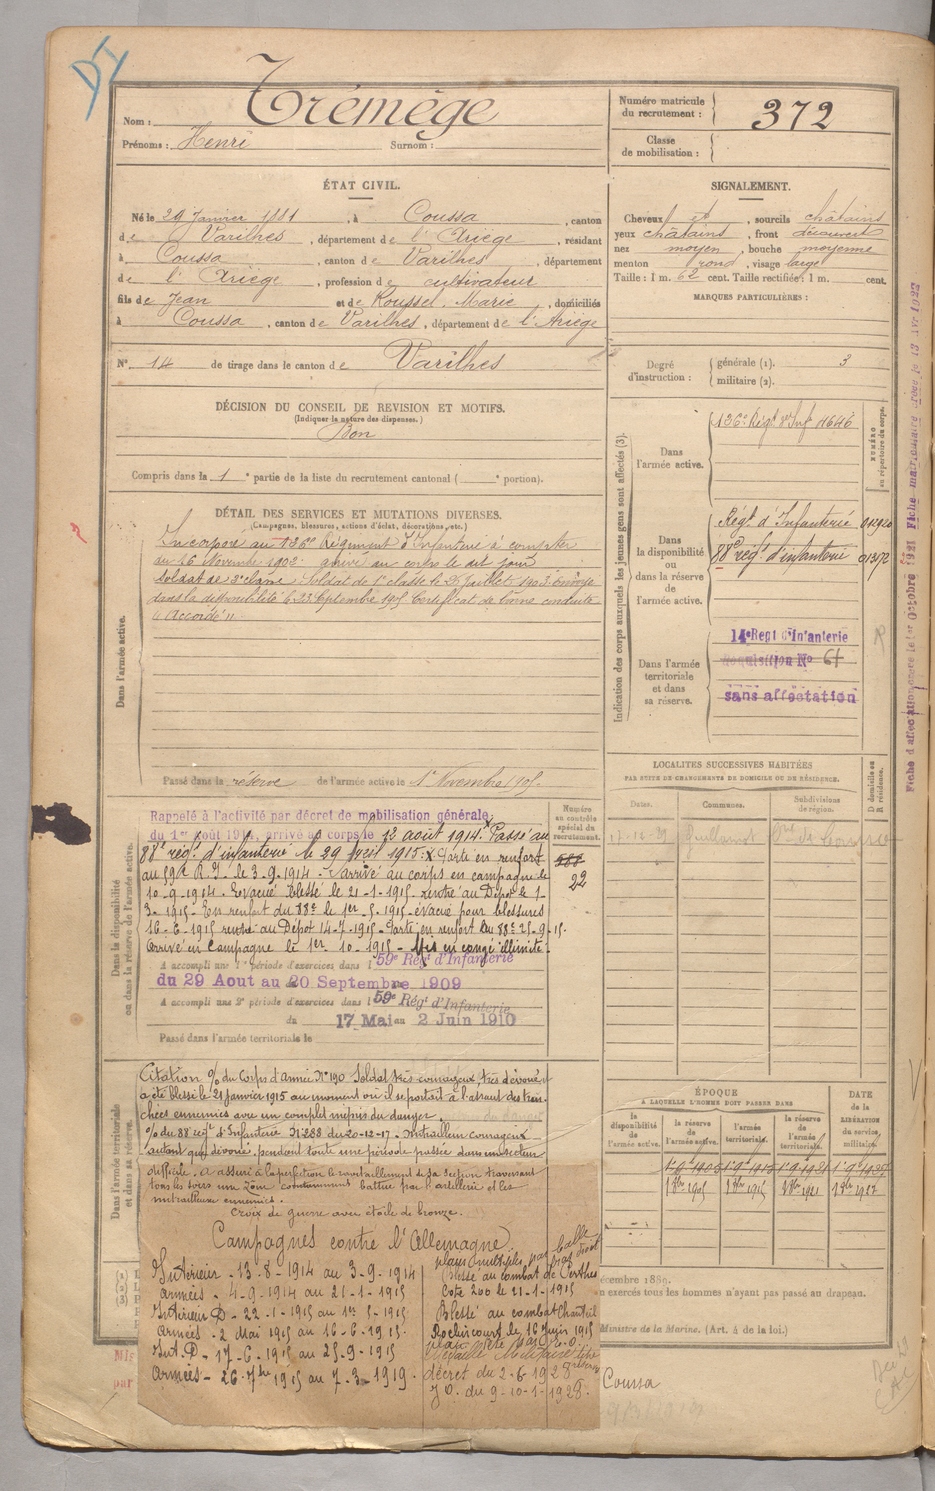 Nom : Trémège
Prénoms : Henri Surnom :
Numéro matricule du recrutement : 372
Classe de mobilisation :
ÉTAT CIVIL.
Né le 29 Janvier 1881, à Coussa, canton
de Varilhes, département de l'Ariège, résidant
à Coussa, canton de Varilhes, département
de l'Ariège, profession de cultivateur
fils de Jean et de Roussel, Marie, domiciliés
à Coussa, canton de Varilhes, département de l'Ariège
N° 14 de tirage dans le canton de Varilhes
DÉCISION DU CONSEIL DE REVISION ET MOTIFS.
(Indiquer la nature des dispenses.)
Bon
Compris dans la 1e partie de la liste du recrutement cantonal ( e portion).
SIGNALEMENT.
Cheveux et, sourcils châtains
yeux châtains, front découvert
nez moyen, bouche moyenne
menton rond, visage large
Taille : 1 m. 62 cent. Taille rectifiée : 1 m. cent.
MARQUES PARTICULIÈRES :
Degré d'instruction : générale (1). 3
militaire (2).
DÉTAIL DES SERVICES ET MUTATIONS DIVERSES.
(Campagnes, blessures, actions d'éclat, décorations, etc.)
Dans l'armée active.
Incorporé au 136e Régiment d'Infanterie à compter
au 16 Novembre 1902 arrivé au corps le dit jour
soldat de 2e classe. Soldat de 1e classe le 25 Juillet 1903. Envoyé
dans la disponibilité le 23 Septembre 1905 Certificat de bonne conduite
"Accordé".
Passé dans la réserve de l'armée active le 1er Novembre 1905.
Indication des corps auxquels les jeunes gens sont affectés (3).
NUMÉRO au répertoire du corps.
Dans l'armée active. 136e Régt d'Inf 4646
Dans la disponibilité ou dans la réserve de l'armée active.
Régt d'Infanterie 012920
88e régt d'infanterie 013572
Dans l'armée territoriale et dans sa réserve.
14e Regt d'Infanterie
Acquisition No 61
sans affectation
Fiche d'affectation créée le 1er Octobre 1921 Fiche matriculaire créée le 13 Avr 1922
LOCALITÉS SUCCESSIVES HABITÉES
PAR SUITE DE CHANGEMENTS DE DOMICILE OU DE RÉSIDENCE.
Dates. Communes. Subdivisions de région. D domicile ou R résidence.
Dans la disponibilité ou dans la réserve de l'armée active.
Numéro au contrôle spécial du recrutement.
Rappelé à l'activité par décret de mobilisation générale
du 1er août 1914, arrivé au corps le 12 août 1914. Passé au
88e régt d'infanterie le 29 1915. x Parti en renfort
au 59e R.I. le 3-9-1914 - arrivé au corps en campagne le
10-9-1914 - Evacué blessé le 21-1-1915 rentré au Dépôt le 1-
3-1915 - En renfort du 88e le 1er-5-1915 - évacué pour blessures
16-6-1915 rentré au Dépôt 14-7-1915 - Parti en renfort du 88e 25-9-15.
Arrivé en Campagne le 1er-10-1915 - Mis en congé illimité.
22
A accompli une 1e période d'exercices dans l 59e Régt d'Infanterie
du 29 Aout au 20 Septembre 1909
A accompli une 2e période d'exercices dans l 59e Régt d'Infanterie
du 17 Mai au 2 Juin 1910
Passé dans l'armée territoriale le
Dans l'armée territoriale et dans sa réserve.
Citation % du Corps d'armée N° 190 Soldat très courageux très dévoué
a été blessé le 21 janvier 1915 au moment où il se portait à l'assaut des tran-
chées ennemies avec un complet mépris du danger.
% du 88 régt d'Infanterie N° 288 du 20-12-17 - mitrailleur courageux
autant que dévoué, pendant toute une période passée dans un secteur
difficile. a assuré à la perfection le ravitaillement de sa section traversant
tous les soirs une zone continument battue par l'artillerie et les
mitrailleuses ennemies.
Croix de guerre avec étoile de bronze.
Campagnes contre l'Allemagne
Intérieur - 13-8-1914 au 3-9-1914
Armées - 4-9-1914 au 21-1-1915
Intérieur D - 22-1-1915 au 1er-5-1915
Armées - 2 Mai 1915 au 16-6-1915.
Int. D - 17-6-1915 au 25-9-1915
Armées - 26-7bre 1915 au 7-3-1919.
plaies multiples par balle
Blessé au combat de Perthes
Cote 200 le 21-1-1915
Blessé au combat Chanteil
Roclincourt le 16 Juin 1915
Médaille Militaire
décret du 2-6-1928
J.O. du 9-10-1-1928.
ÉPOQUE
A LAQUELLE L'HOMME DOIT PASSER DANS
la disponibilité de l'armée active. la réserve de l'armée active. l'armée territoriale. la réserve de l'armée territoriale. DATE de la LIBÉRATION du service militaire.
1-9-1905 1-9-1915 1-9-1921 1-9-1927
1 9bre 1905 1 9bre 1915 1 9bre 1921 1 9bre 1927
écembre 1889.
n exercés tous les hommes n'ayant pas passé au drapeau.
Ministre de la Marine. (Art. 4 de la loi.)
Coussa